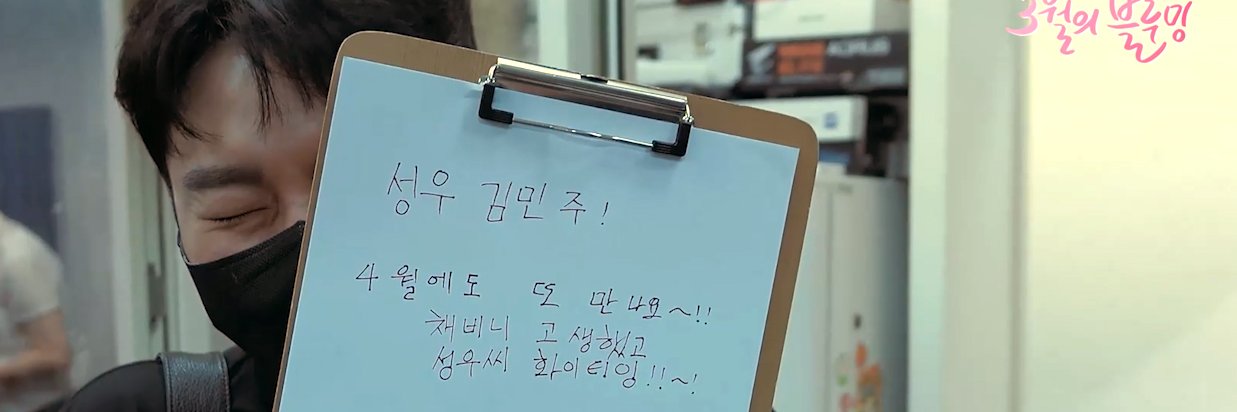 3월의 블루밍
성우 김민주!
4월에도 또 만나요~!!
채비니 고생했고
성우씨 화이티잉!!~!